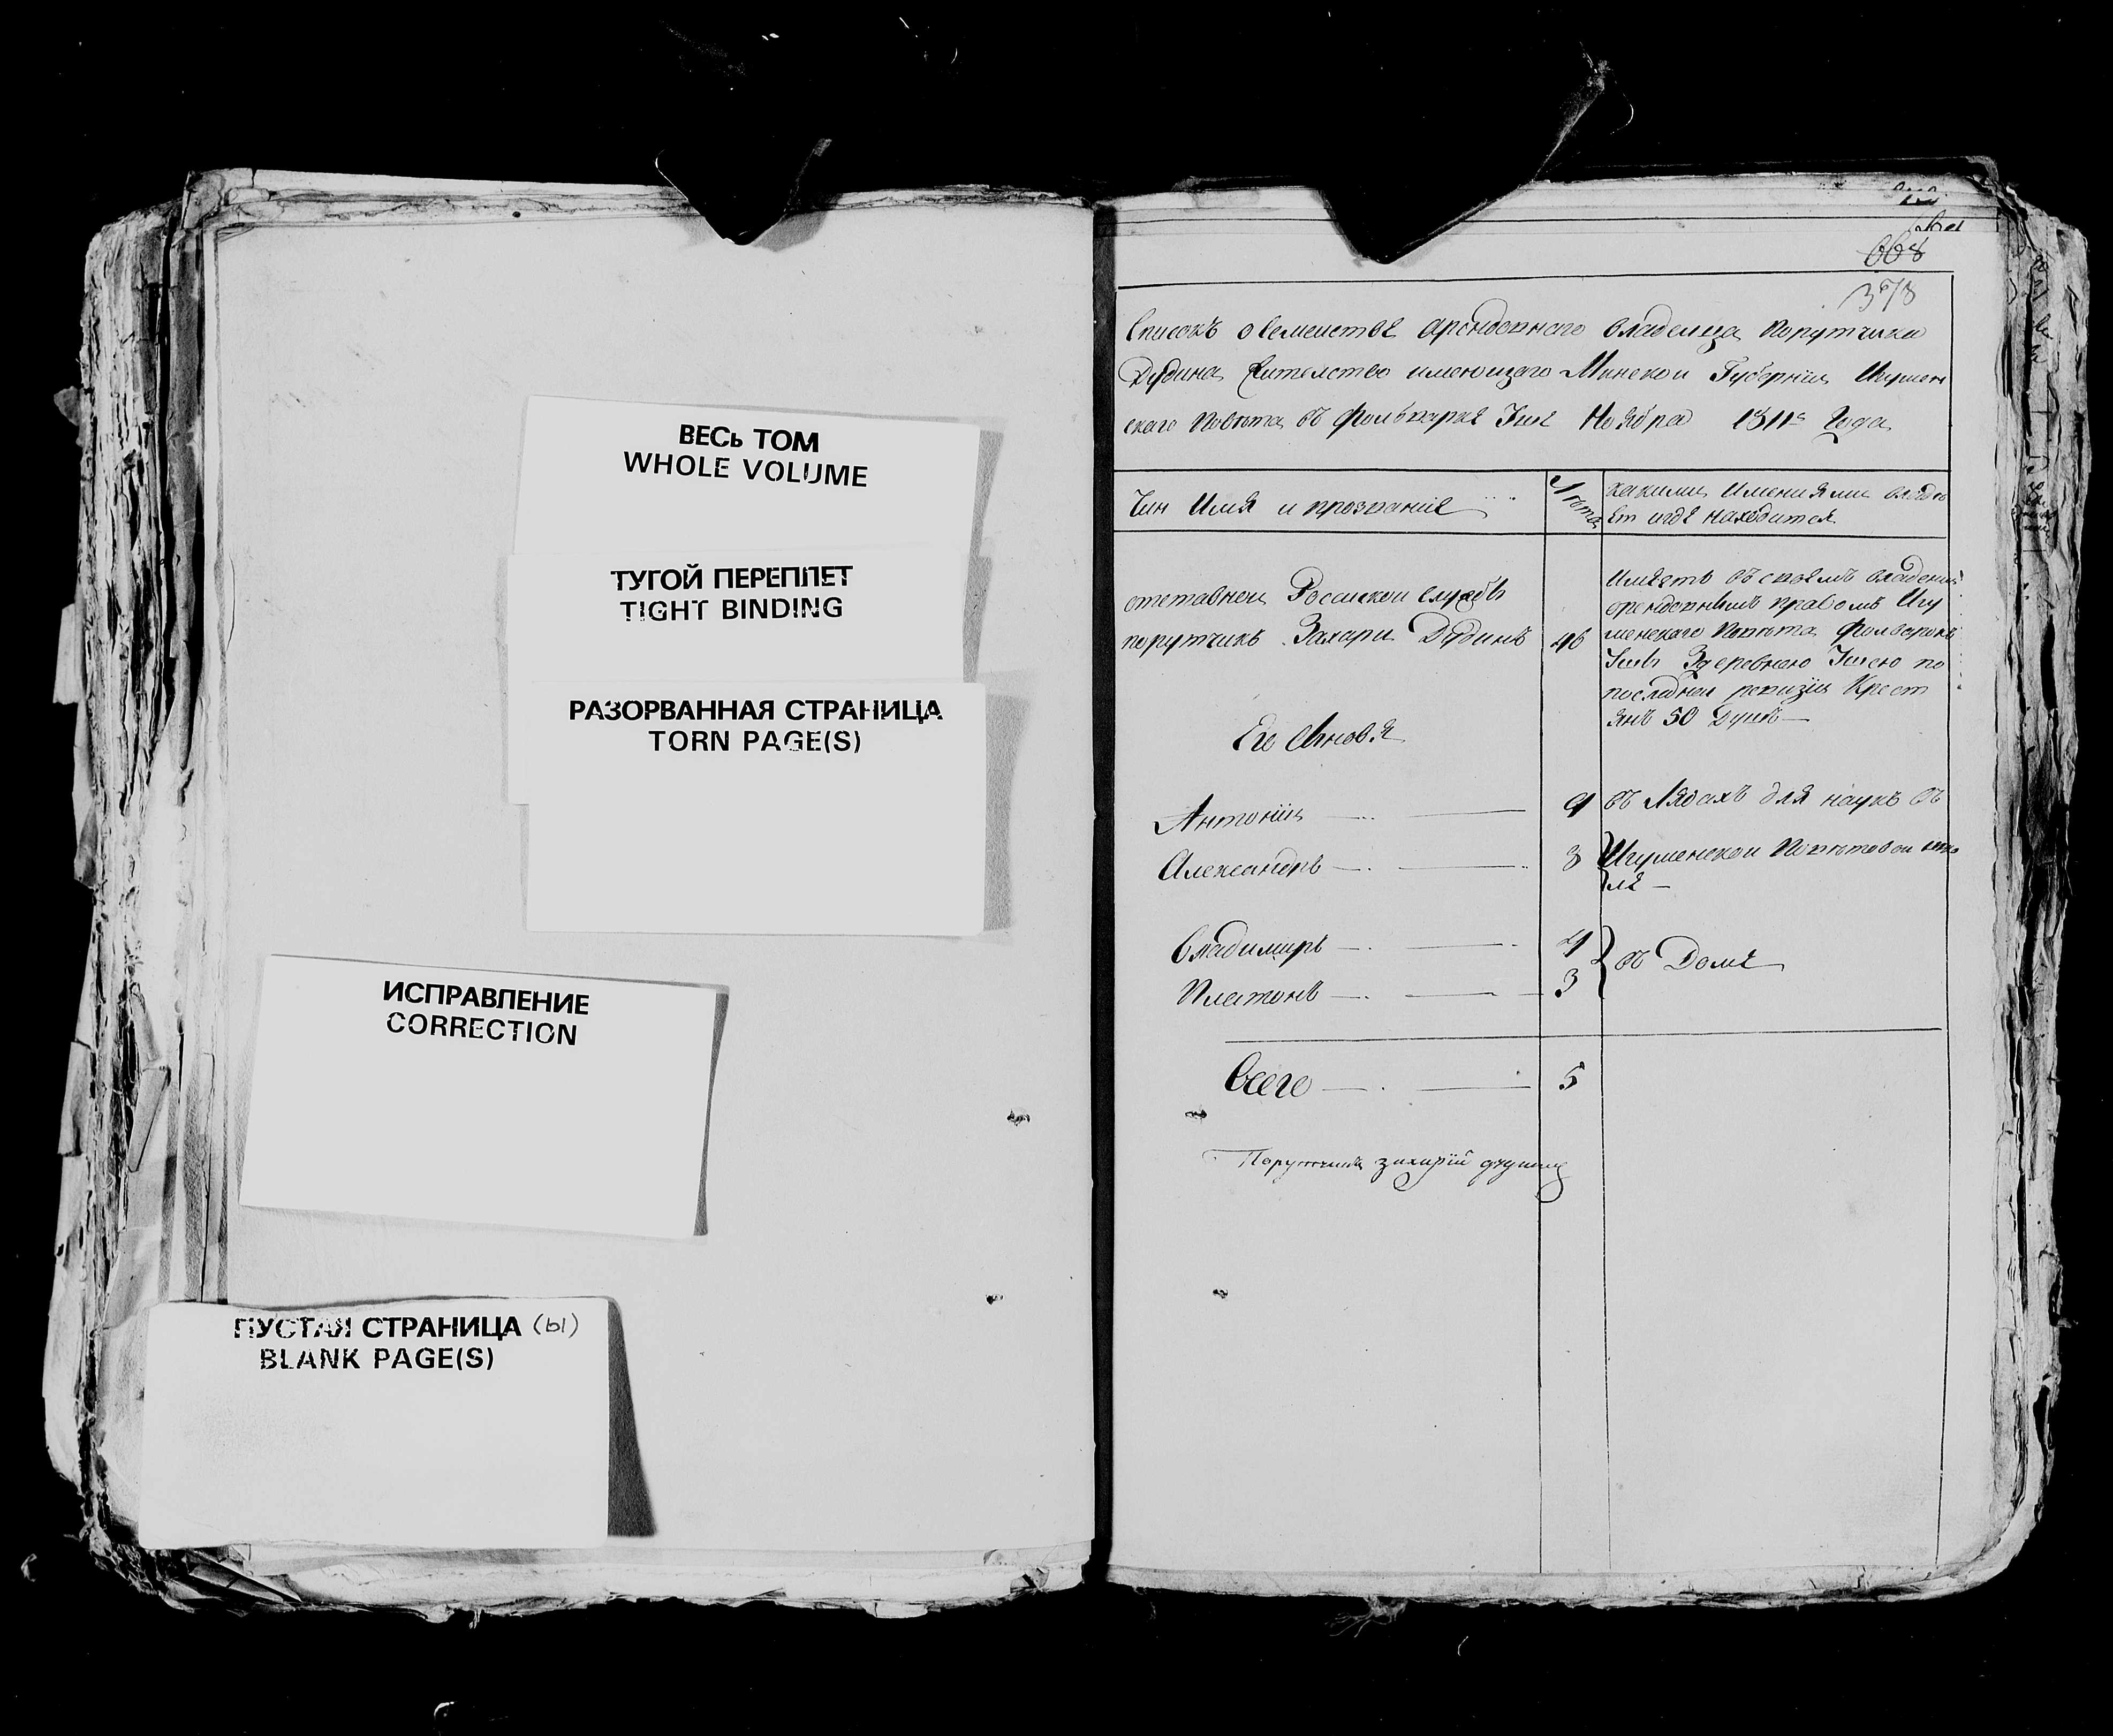 ВЕСЬ ТОМ
WHOLE VOLUME
ТУГОЙ ПЕРЕПЛЕТ
TIGHT BINDING
РАЗОРВАННАЯ СТРАНИЦА
TORN PAGE(S)
ИСПРАВЛЕНИЕ
CORRECTION
ПУСТАЯ СТРАНИЦА (ы)
BLANK PAGE(S)
668
378
Списокъ о семействѣ арендовнаго владельца порутчика
Дудина жителство имеющаго Минской Губерніи Игумен
скаго повѣта въ фольваркѣ Ноября 1811го Года
Чин Имя и прозваніе
Лѣта
какими Имениями владѣ
ет игдѣ находится
отставной Российской службы
порутчикъ Захарий Дудинъ
46
Имѣетъ въ своемъ владении
арендовнымъ правомъ Игу
менскаго повѣта фольворокъ
Здеревнею по
последней ревизіи Крест
янъ 50 Душъ
Его Сыновя
Антоній
9
въ Лядахъ для наукъ въ
Александръ
8
Игуменской повѣтовой шко
лѣ
Владимиръ
4
въ Домѣ
Платонъ
3
Всего
5
Порутчикъ захарій дудинъ